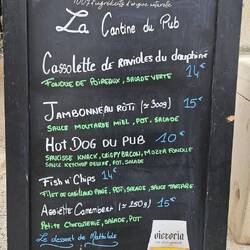 100% ingrédients d'origine naturelle
La Cantine du Pub
Cassolette de ravioles du dauphiné
Fondue de poireaux, salade verte 14€
Jambonneau rôti (≈300g) 15€
Sauce moutarde miel, pot, salade
Hot Dog du pub 10€
Saucisse knack, crispy bacon, mozza fondue
Sauce ketchup deluxe, pot, salade
Fish n' Chips 14€
Filet de cabillaud pané, pot, salade, sauce tartare
Assiette Camembert (≈150g) 15€
Petite charcuterie, salade, pot
Le dessert de Mathilde
victoria